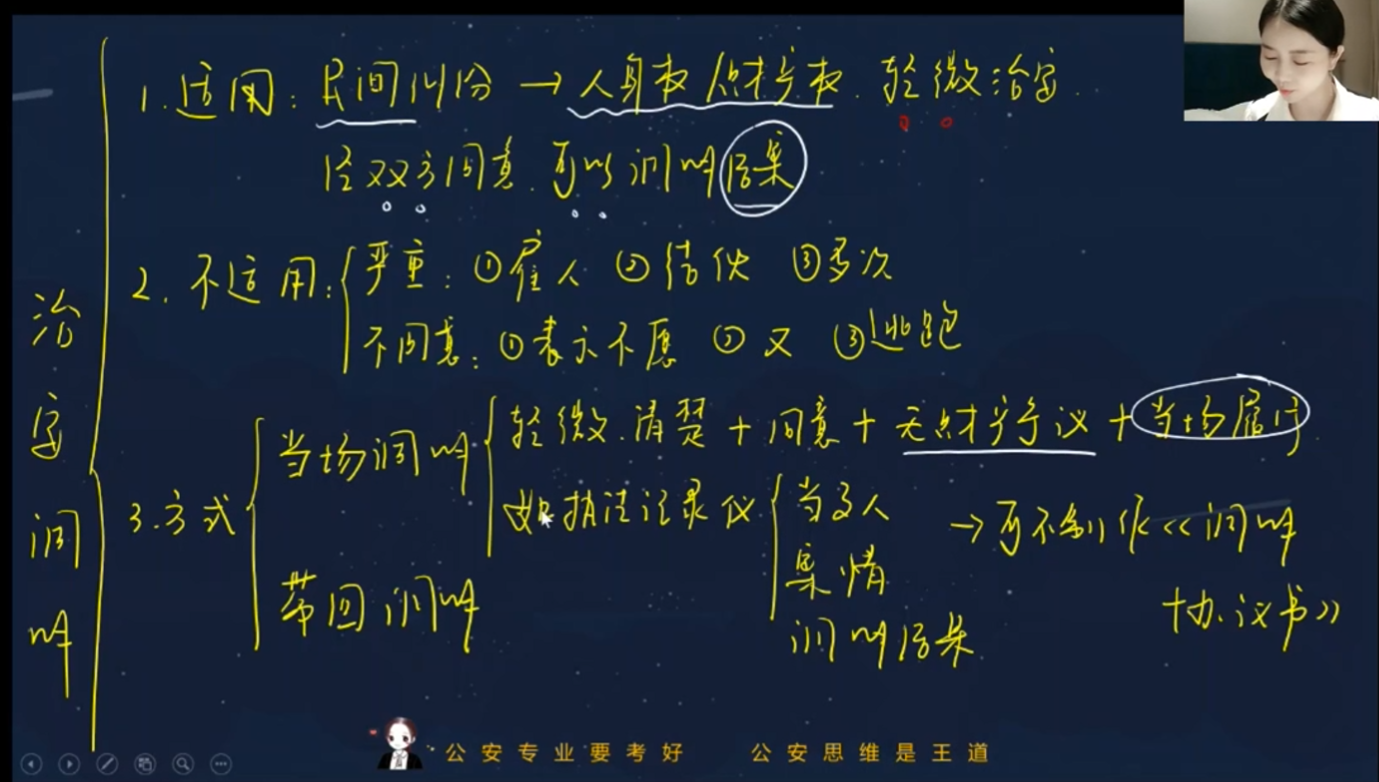 治安调解
1.适用：民间纠纷→人身权/财产权.轻微治安..
经双方同意.可以调解结案
2.不适用：
严重：①雇人 ②结伙 ③多次
不同意：①表示不愿 ②又 ③逃跑
3.方式
当场调解
轻微.清楚+同意+无财产争议+当场履行.
如执法记录仪
当事人
案情
调解结果
→可不制作《调解
协议书》
带回调解
公安专业要考好 公安思维是王道